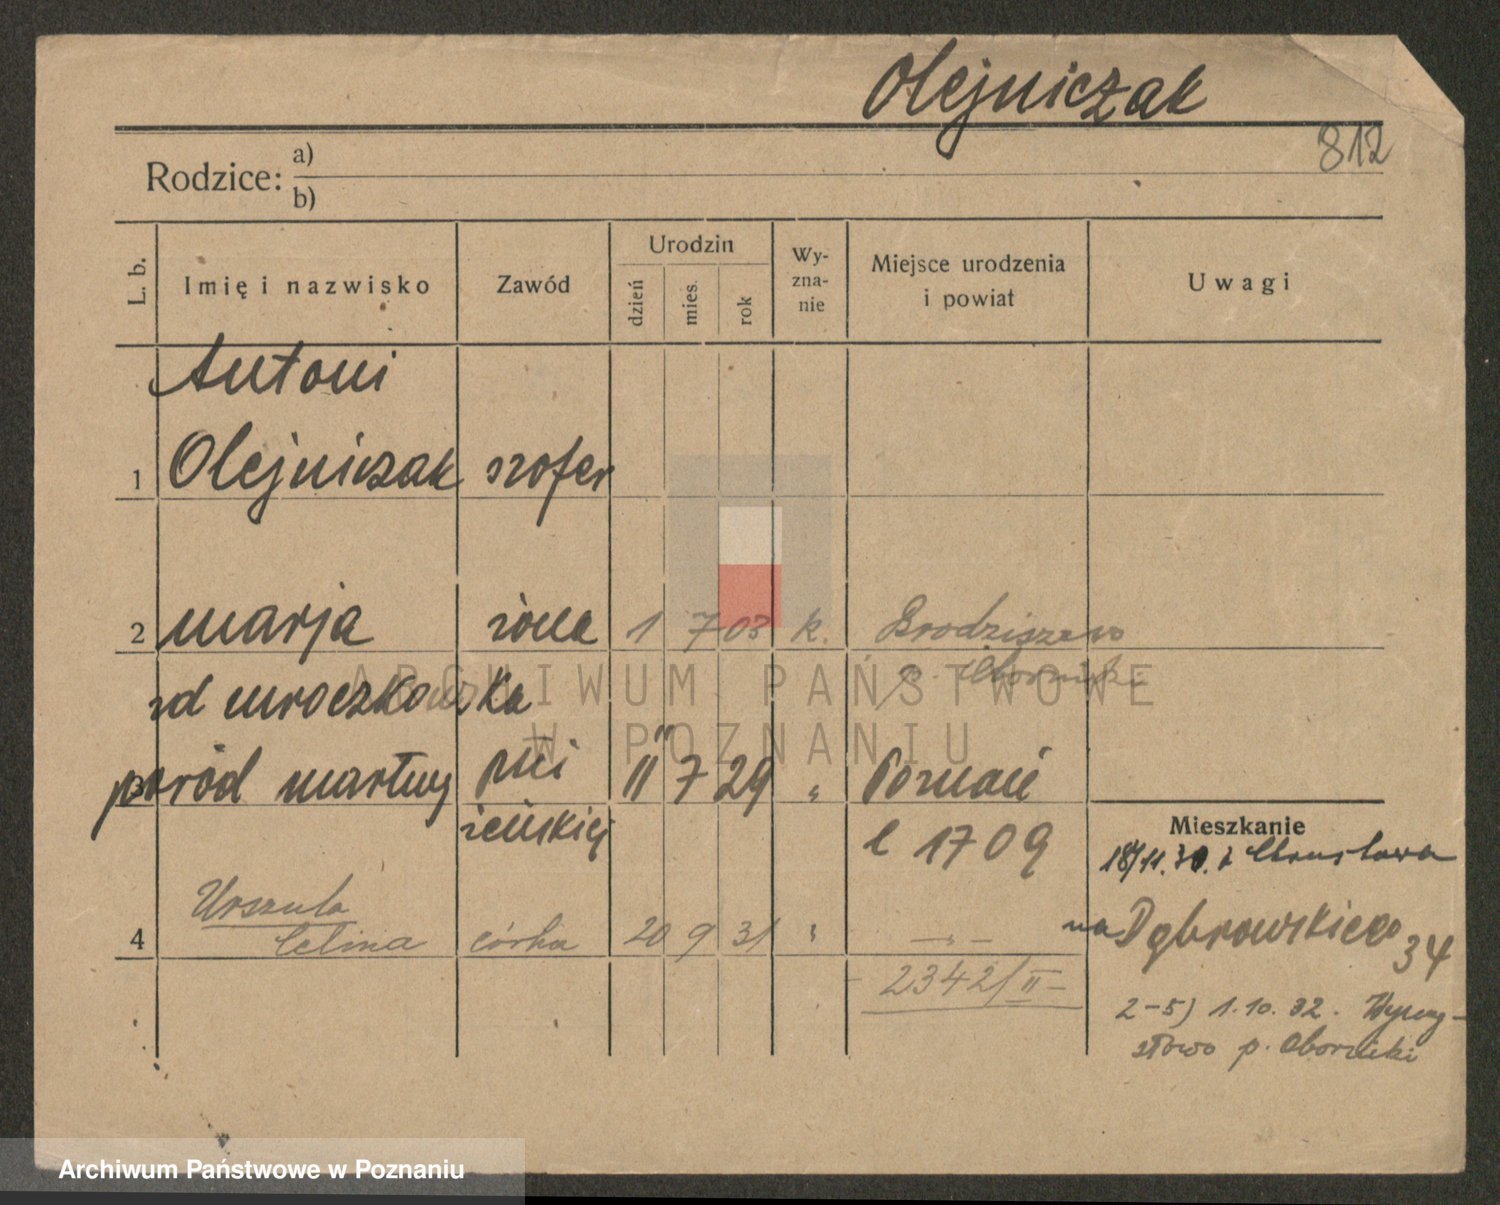 Olejniczak
812
Rodzice: a)
b)
L. b.
Imię i nazwisko
Zawód
Urodzin
dzień
mies.
rok
Wy-
zna-
nie
Miejsce urodzenia
i powiat
Uwagi
Antoni
1 Olejniczak szofer
2 Marja żona 1 7 03 k. Brodziszewo
p. Obornicki
zd Mroczkowska
3 poród martwy płci 11 7 29 " Poznań
żeńskiej
l 1709
Mieszkanie
18/11.30. z
Urszula
4 Celina córka 20 9 31 " — " —
na Dąbrowskiego 34
- 2342/II -
2-5) 1.10.32.
p. Obornicki
ARCHIWUM PAŃSTWOWE
W POZNANIU
Archiwum Państwowe w Poznaniu